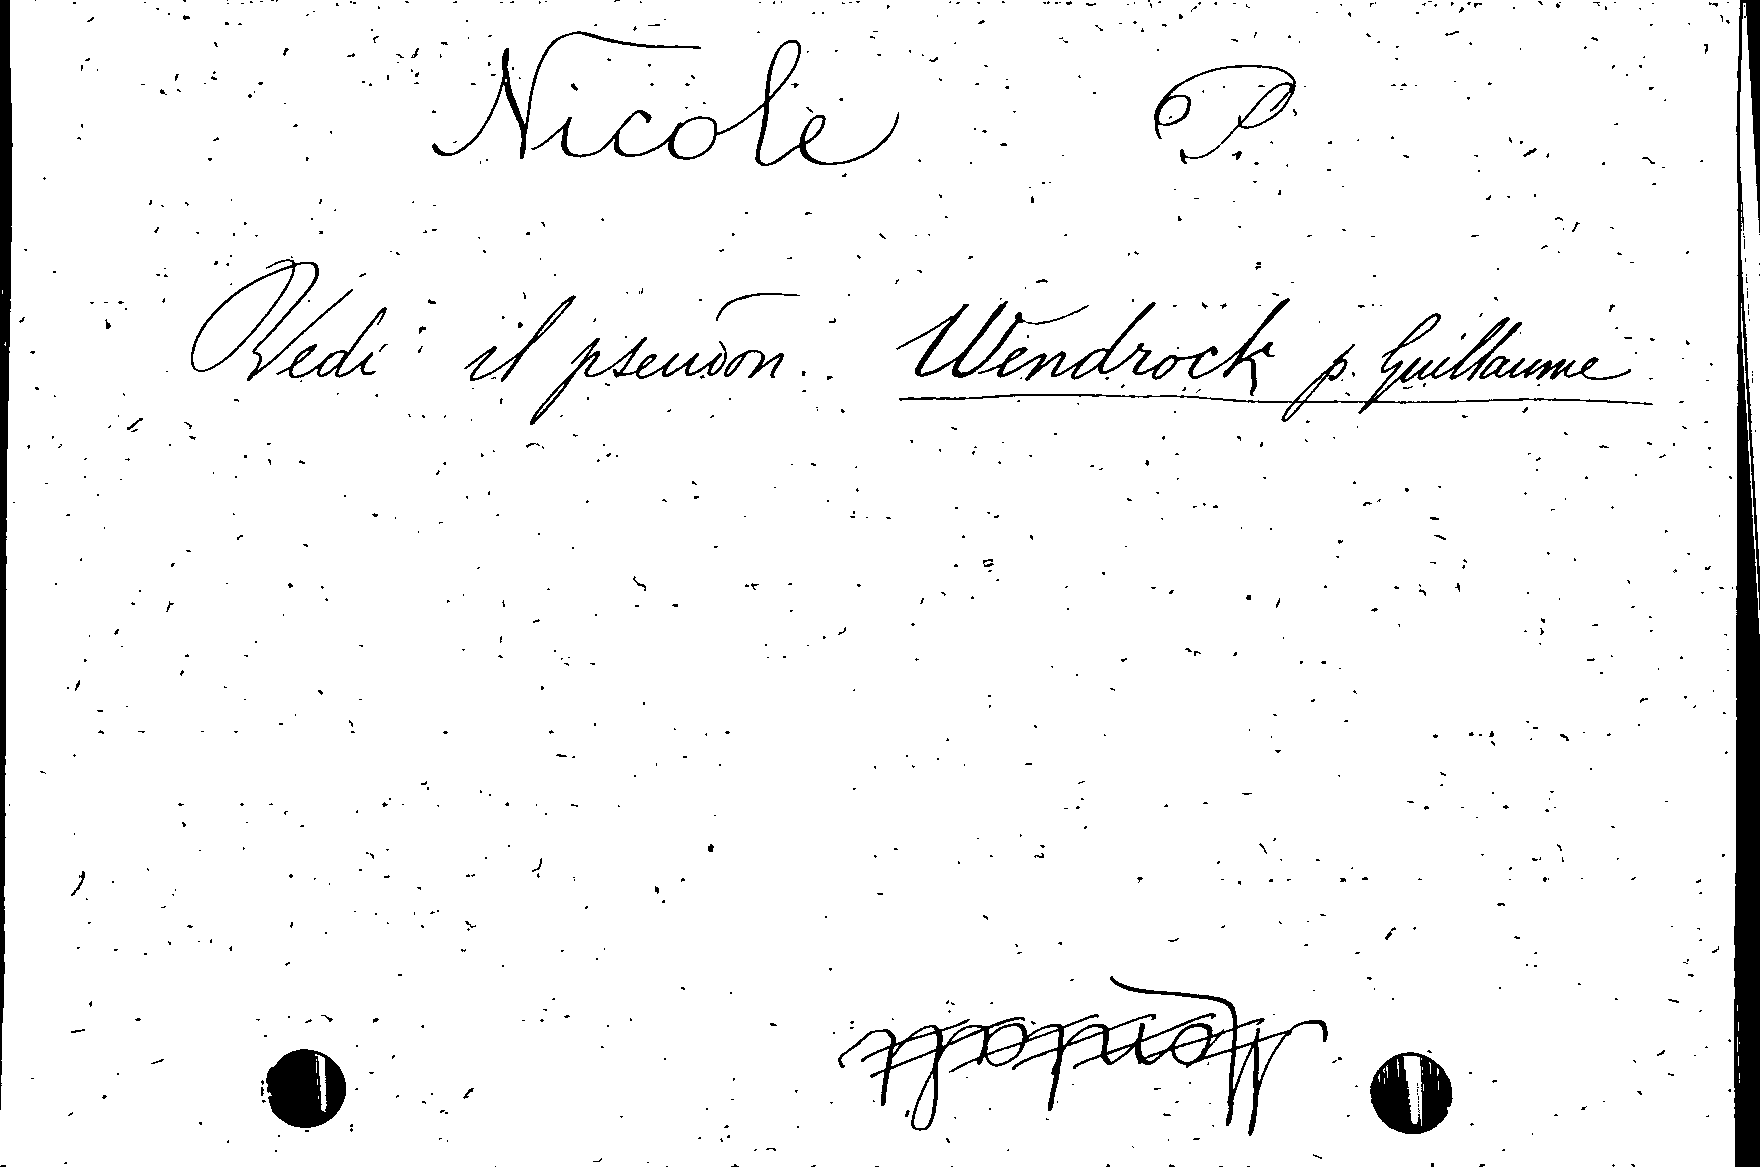 Nicole P.
Vedi : il pseudon. Wendrock p. Guillaume